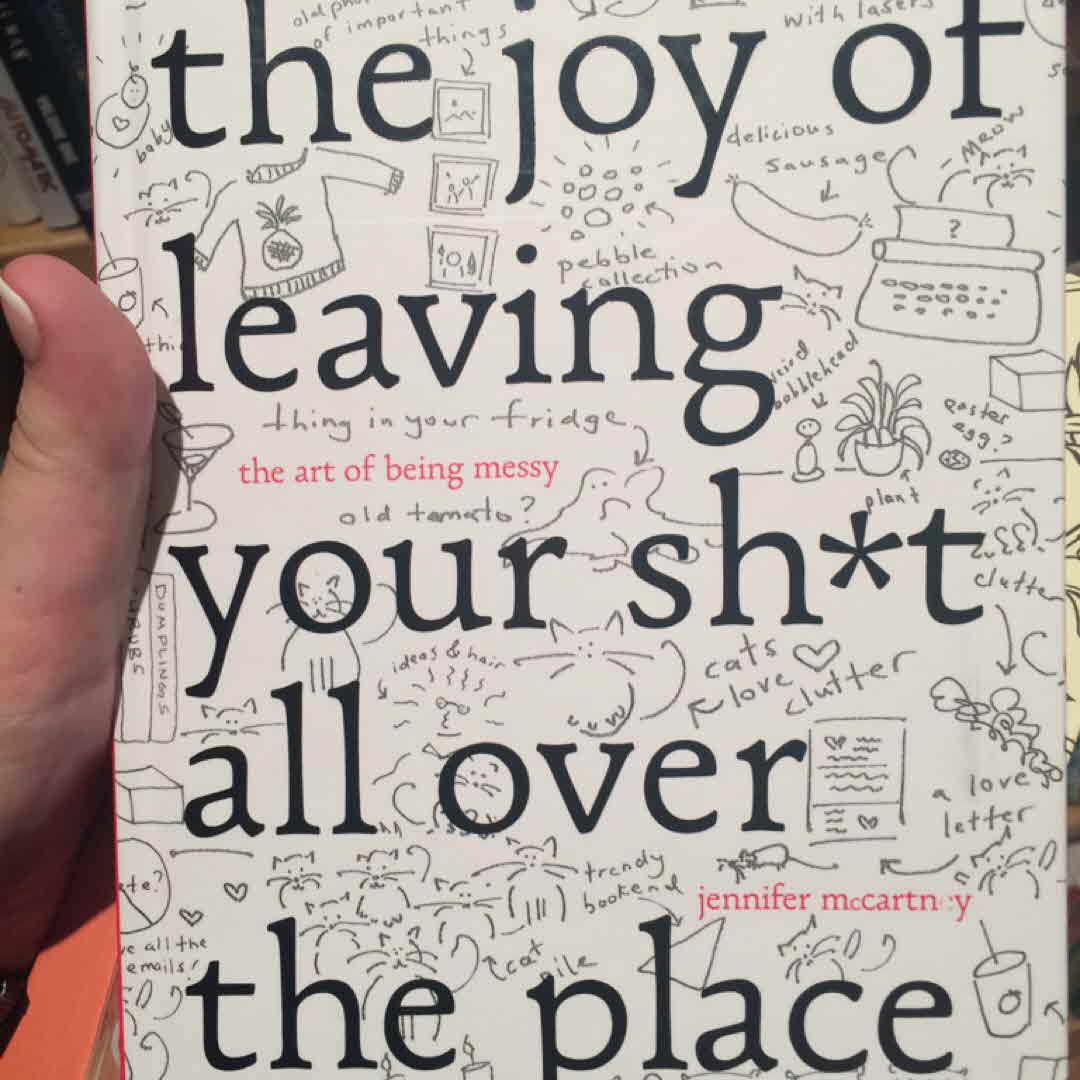 of important
things
with lasers
the joy of
baby
delicious
sausage
MEOW
?
pebble
collection
leaving
weird
bobblehead
easter
egg?
thing in your fridge
the art of being messy
plant
old tomato?
your sh*t
clutter
DUMPLINGS
ideas & hair
cats
love
clutter
all over
a love
letter
trendy
bookend
jennifer mccartn y
all the
emails!
cat
pile
the place